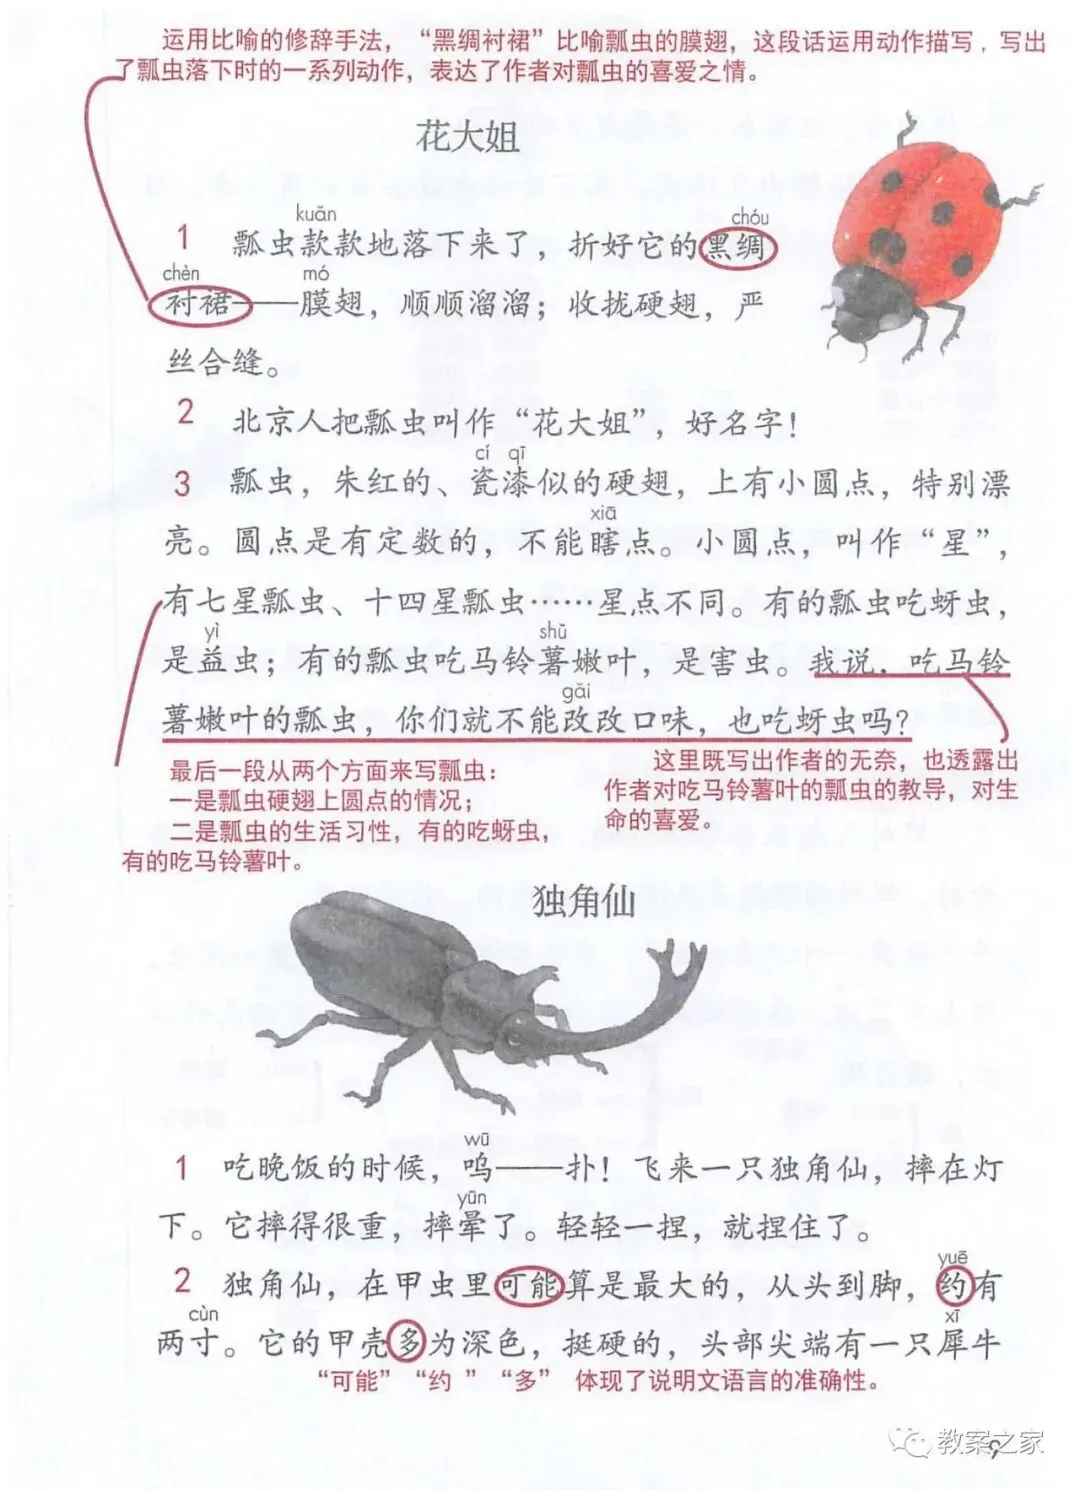 运用比喻的修辞手法，“黑绸衬裙”比喻瓢虫的膜翅，这段话运用动作描写，写出
了瓢虫落下时的一系列动作，表达了作者对瓢虫的喜爱之情。
花大姐
kuǎn
chóu
1 瓢虫款款地落下来了，折好它的黑绸
chèn mó
衬裙——膜翅，顺顺溜溜；收拢硬翅，严
丝合缝。
2 北京人把瓢虫叫作“花大姐”，好名字！
cí qī
3 瓢虫，朱红的、瓷漆似的硬翅，上有小圆点，特别漂
xiā
亮。圆点是有定数的，不能瞎点。小圆点，叫作“星”，
有七星瓢虫、十四星瓢虫……星点不同。有的瓢虫吃蚜虫，
yì shǔ
是益虫；有的瓢虫吃马铃薯嫩叶，是害虫。我说，吃马铃
gǎi
薯嫩叶的瓢虫，你们就不能改改口味，也吃蚜虫吗？
最后一段从两个方面来写瓢虫：
一是瓢虫硬翅上圆点的情况；
二是瓢虫的生活习性，有的吃蚜虫，
有的吃马铃薯叶。
这里既写出作者的无奈，也透露出
作者对吃马铃薯叶的瓢虫的教导，对生
命的喜爱。
独角仙
wū
1 吃晚饭的时候，呜——扑！飞来一只独角仙，摔在灯
yūn
下。它摔得很重，摔晕了。轻轻一捏，就捏住了。
yuē
2 独角仙，在甲虫里可能算是最大的，从头到脚，约有
cùn xī
两寸。它的甲壳多为深色，挺硬的，头部尖端有一只犀牛
“可能”“约 ”“多” 体现了说明文语言的准确性。
教案之家